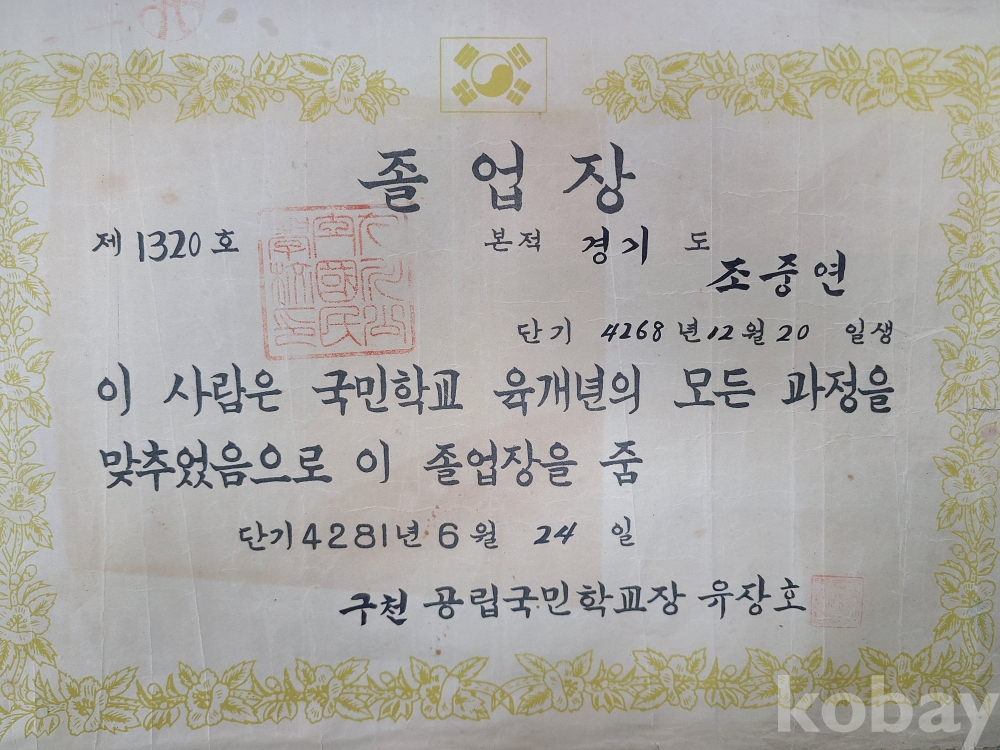 졸업장
제 1320 호
본적 경기 도
조중연
단기 4268 년 12 월 20 일생
이 사람은 국민학교 육개년의 모든 과정을
맞추었음으로 이 졸업장을 줌
단기 4281년 6월 24 일
구천 공립국민학교장 유장호
kobay